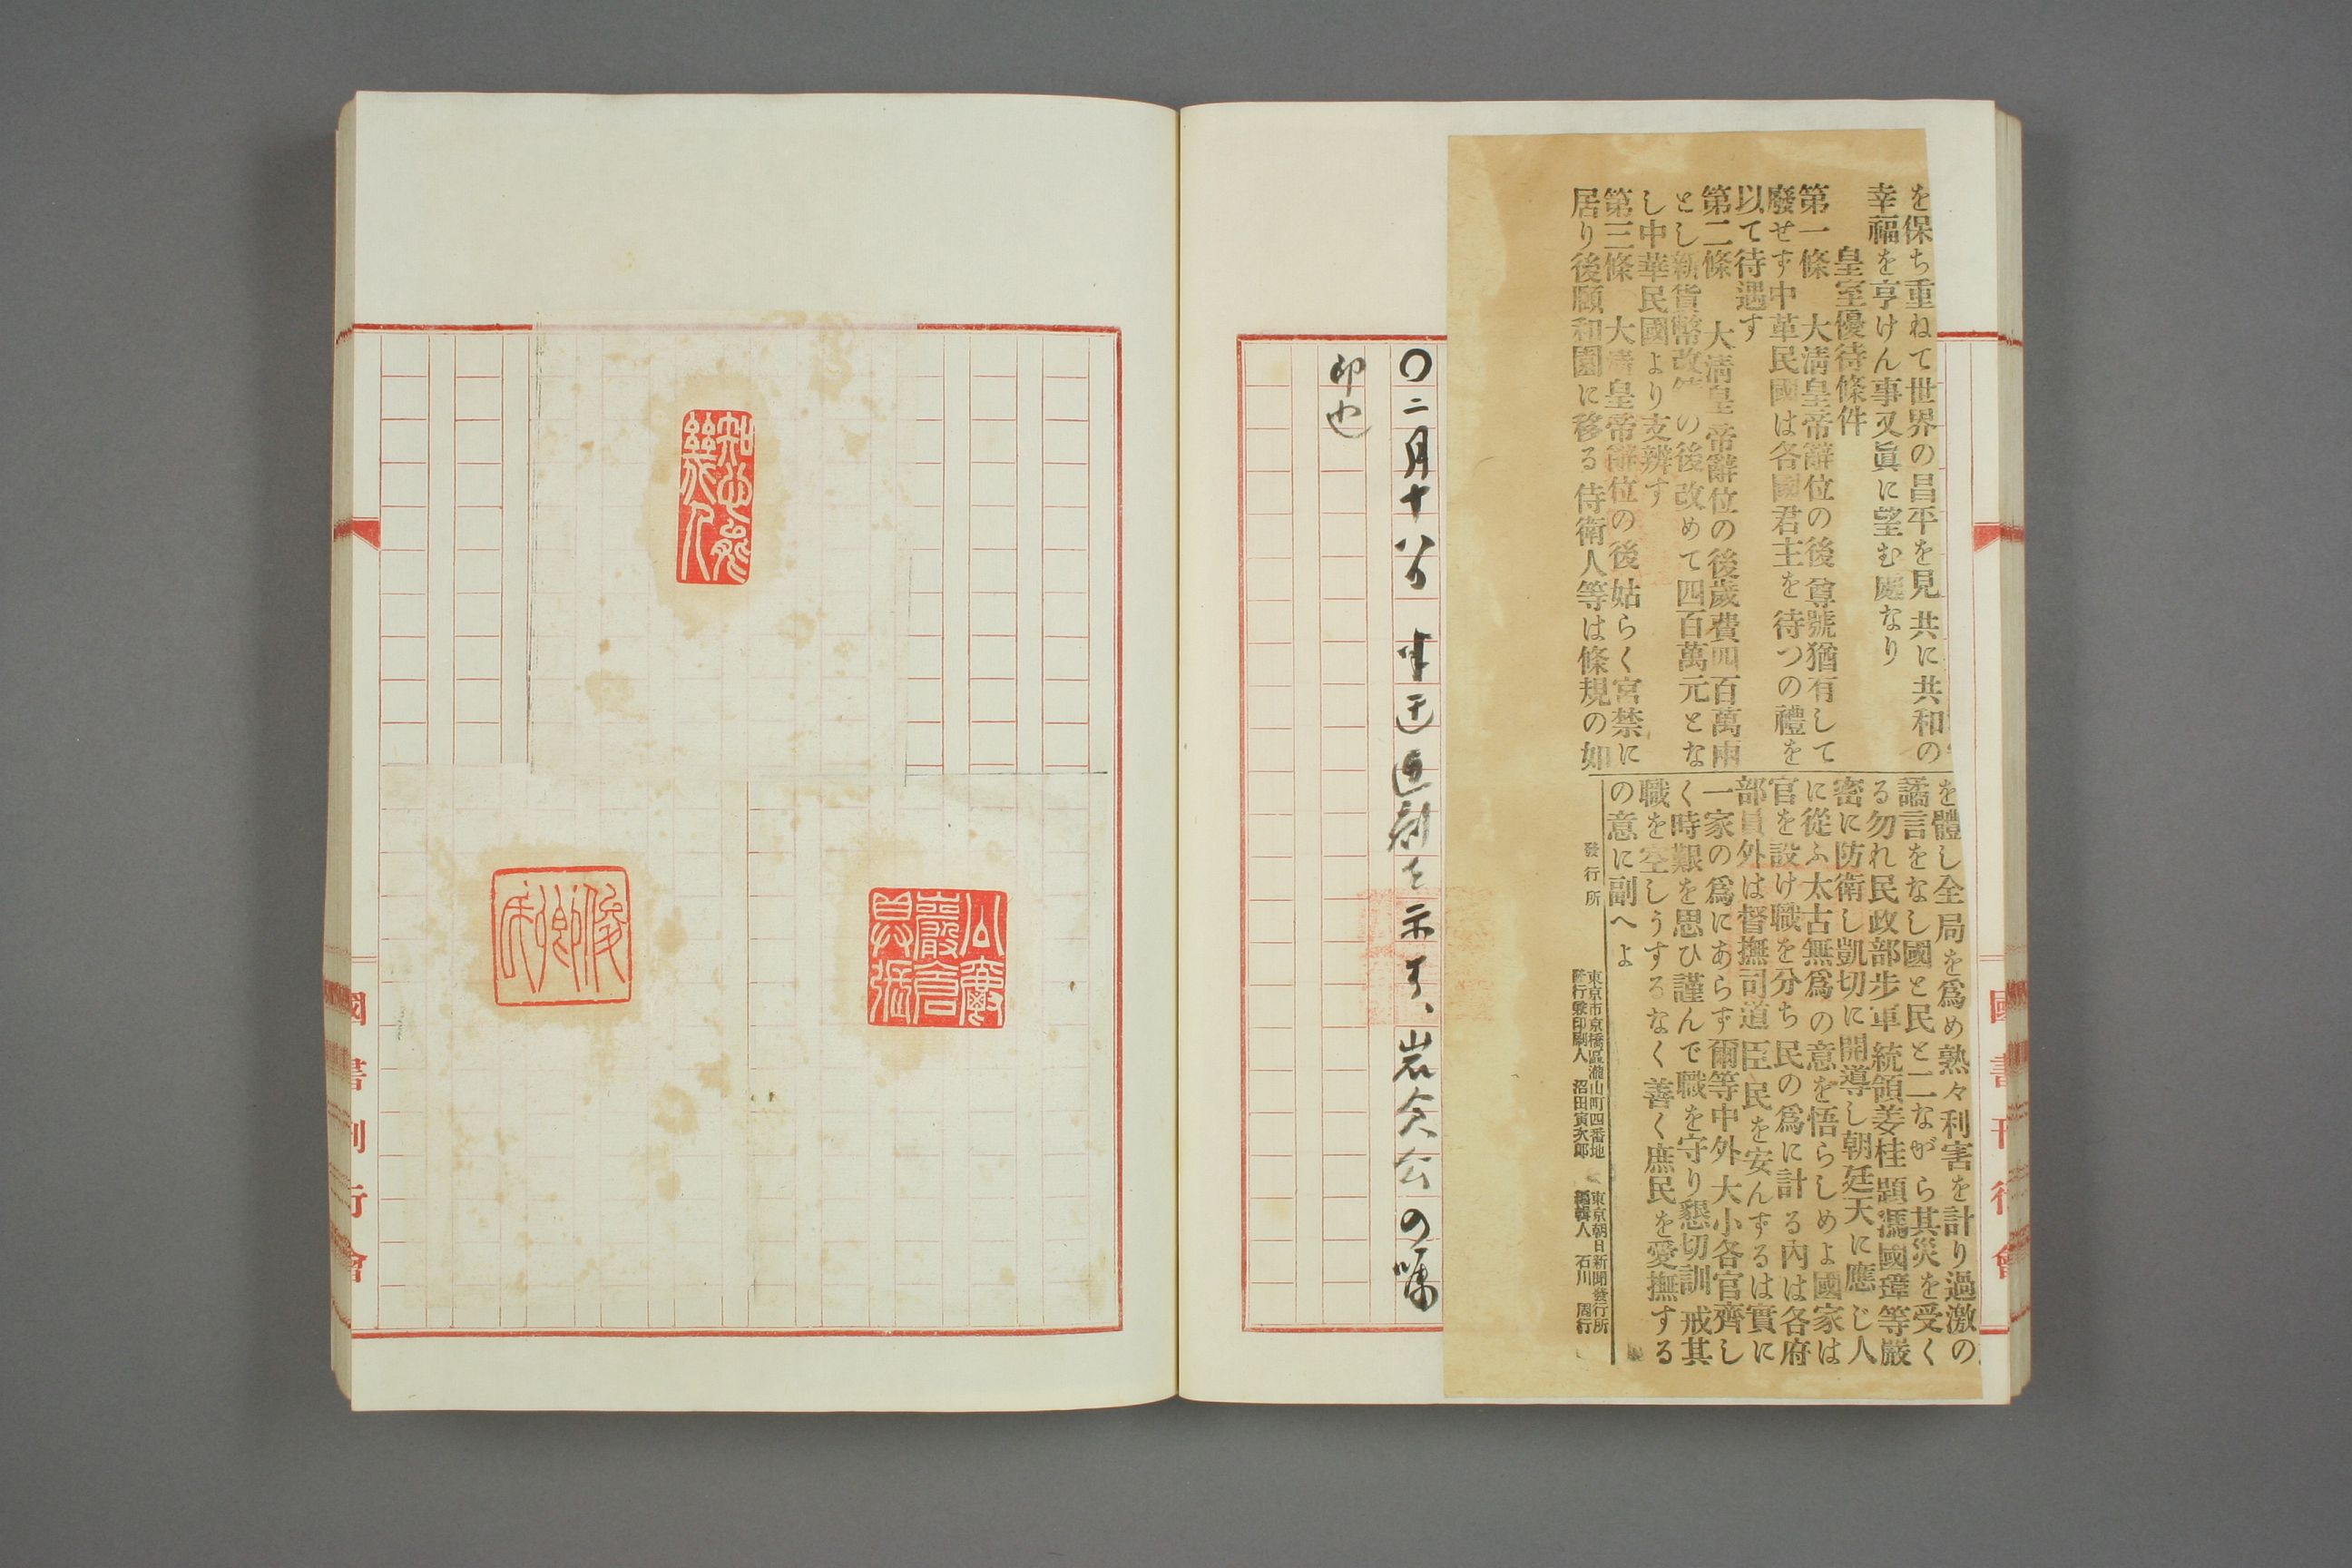 を保ち重ねて世界の昌平を見共に共和の
幸福を享けん事又眞に望む處なり
皇室優待條件
第一條　大淸皇帝辭位の後尊號猶有して
廢せす中革民國は各國君主を待つの禮を
以て待遇す
第二條　大淸皇帝辭位の後歲費四百萬兩
とし新貨幣改鑄の後改めて四百萬元とな
し中華民國より支辨す
第三條　大淸皇帝辭位の後姑らく宮禁に
居り後頤和園に移る侍衛人等は條規の如
を體し全局を爲め熟々利害を計り過激の
譎言をなし國と民と二ながら其災を受く
る勿れ民政部步軍統領姜桂題馮國璋等嚴
密に防衛し凱切に開導し朝廷天に應じ人
に從ふ太古無爲の意を悟らしめよ國家は
官を設け職を分ち民の爲に計る內は各府
部員外は督撫司道臣民を安んずるは實に
一家の爲にあらず爾等中外大小各官齊し
く時艱を思ひ謹んで職を守り懇切訓戒其
職を空しうするなく善く庶民を愛撫する
の意に副へよ
發行所
東京市京橋區瀧山町四番地　東京朝日新聞發行所
發行兼印刷人　沼田寅次郎　編輯人　石川周行
〇二月十八日
近刻を示す、岩倉公の囑
印也
國書刊行會
公爵
巖倉
具張
俊卿
國書刊行會